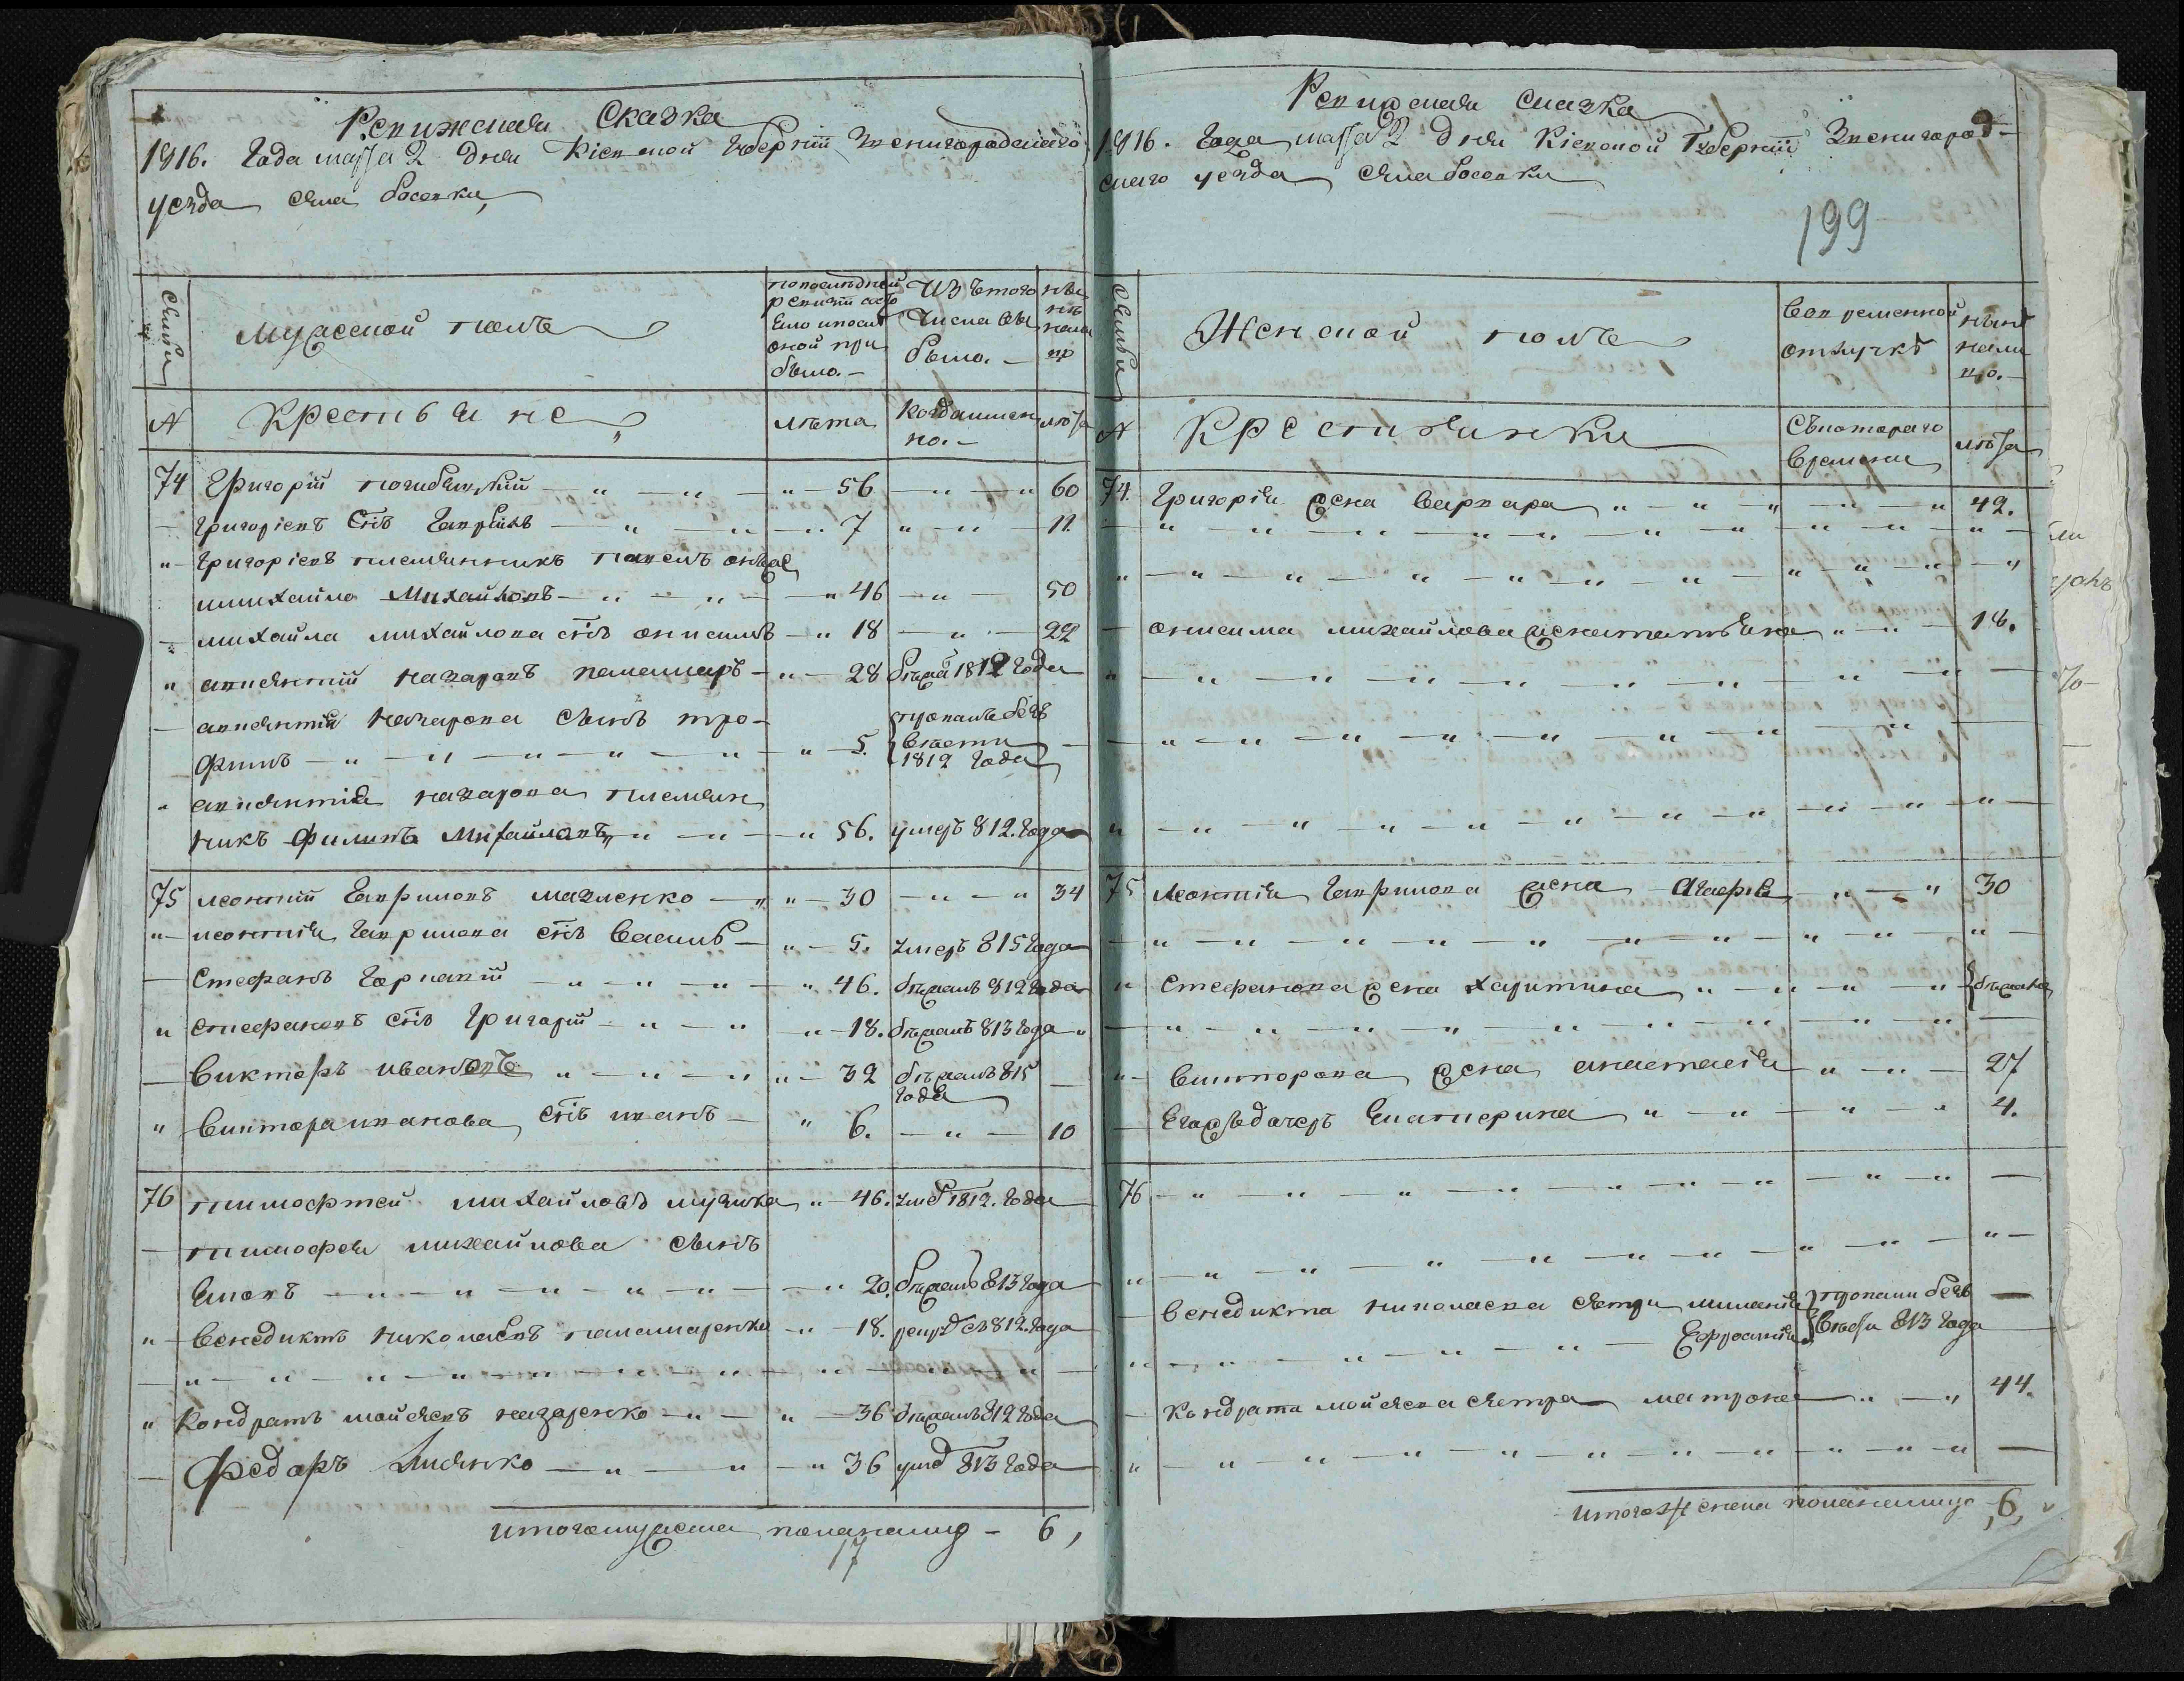 Ревижская Сказка
1816. Года марта 2 дня Кіевской Губерніи Звенигородскаго
уезда села босовки,
Семьи
Мужеской полъ
попоследней
ревизіи состо
яло и после
оной при
было.-
Изъ того
числа вы
было.-
ныне
на
лицо
№
Крестьяне
лета
Когда именно.-
лета
74 Григорій 56 60
Григоріевъ снъ Гаврыло 7 11
Григоріевъ племянникъ Павелъ онъже
и михайло Михайловъ 46 50
михайла михайлова снъ онисимъ 18 22
авксентій назаровъ паламаръ 28 бежал 1812 Года
авксентія назарова сынъ тро-
фимъ 5. пропалъ безъ вести 1812 Года
авксентія назарова племян
никъ Филипъ Михайловъ 56. умеръ 812. Года
75 леонтій Гавриловъ мазменко 30 34
леонтія Гаврилова снъ Василь 5. умеръ 815 Года
Стефанъ Горкавій 46. бежалъ 812 Года
стефановъ снъ Григорій 18. бежалъ 813 Года
Викторъ ивановъ 32 бежалъ 815 Года
Виктора иванова снъ иванъ 6. 10
76 тимофтей михайловъ музыка 46. умер 1812. Года
тимофея михайлова сынъ
Яковъ 20. бежалъ 813 Года
Венедиктъ николаевъ паламаренко 18. рекр съ 812. Года
Кондратъ мойсеевъ назаренко 36 бежалъ 812 Года
Федоръ Лисенко 36 умер 813 Года
итого мужеска пола налицо - 6,
17
Ревижская сказка
1816. Года марта 2 дня Кіевской Губерніи Звенигород-
скаго уезда села босовки
199
Семьи
Женской полъ
Вовременной
отлучке
ныне
нали
цо.-
№
Крестьянки
Съкотораго
времени
лета
74. Григорія жена варвара 42.
онисима михайлова жена татьяна 18.
75 леонтія Гаврилова жена Агафія 30
Стефанова жена харитина бежала
викторова жена анастасія 27
Егожъ дочеръ Екатерина 4.
76
Венедикта николаева сестри миланія пропали безъ
Ефросинія вести 813 Года
Кондрата мойсеева сестра матрона 44.
итого женска пола налицо 6,